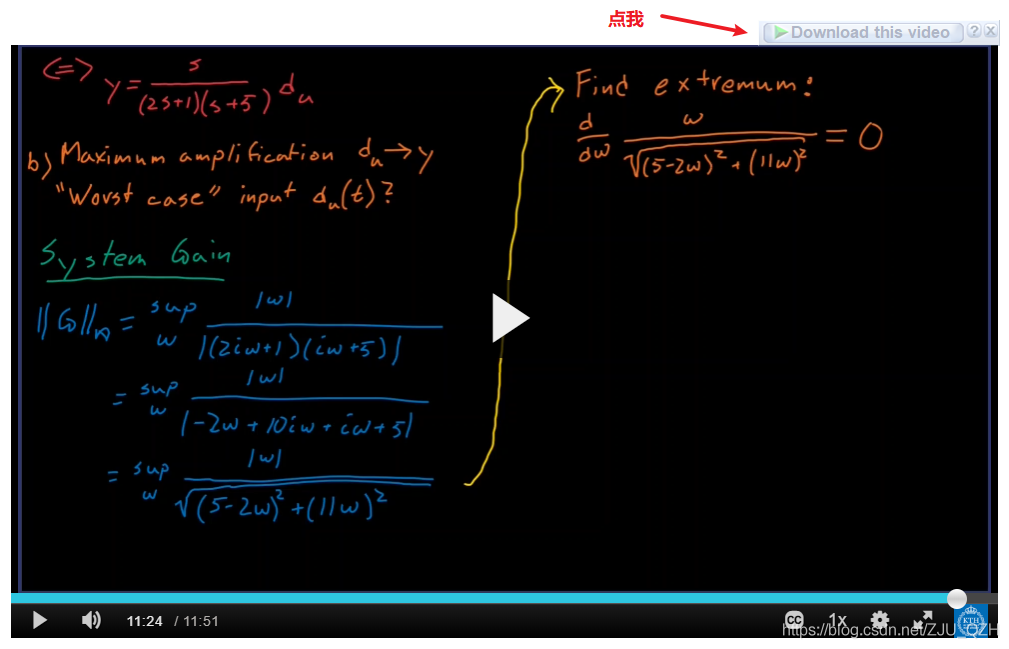 点我
Download this video ? x
<=> y = s / (2s+1)(s+5) du
b) Maximum amplification du → y
"Worst case" input du(t)?
System Gain
||G||∞ = sup ω |ω| / |(2iω+1)(iω+5)|
= sup ω |ω| / |-2ω+10iω+iω+5|
= sup ω |ω| / √(5-2ω)² + (11ω)²
Find extremum:
d/dω ω / √(5-2ω)² + (11ω)² = 0
11:24 / 11:51
CC 1x
KTH
https://blog.csdn.net/ZJU_QZH